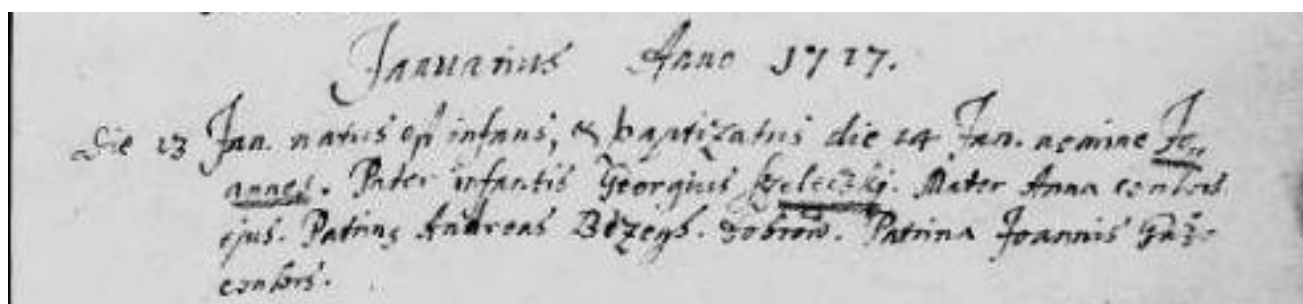 Januarius Anno 1717.
Die 13 Jan. natus est infans, & baptizatus die 14 Jan. nomine Jo„
annes. Pater infantis Georgius Szeleczkj. Mater Anna consors
ejus. Patrinus Andreas Patrina Joannis
consors.